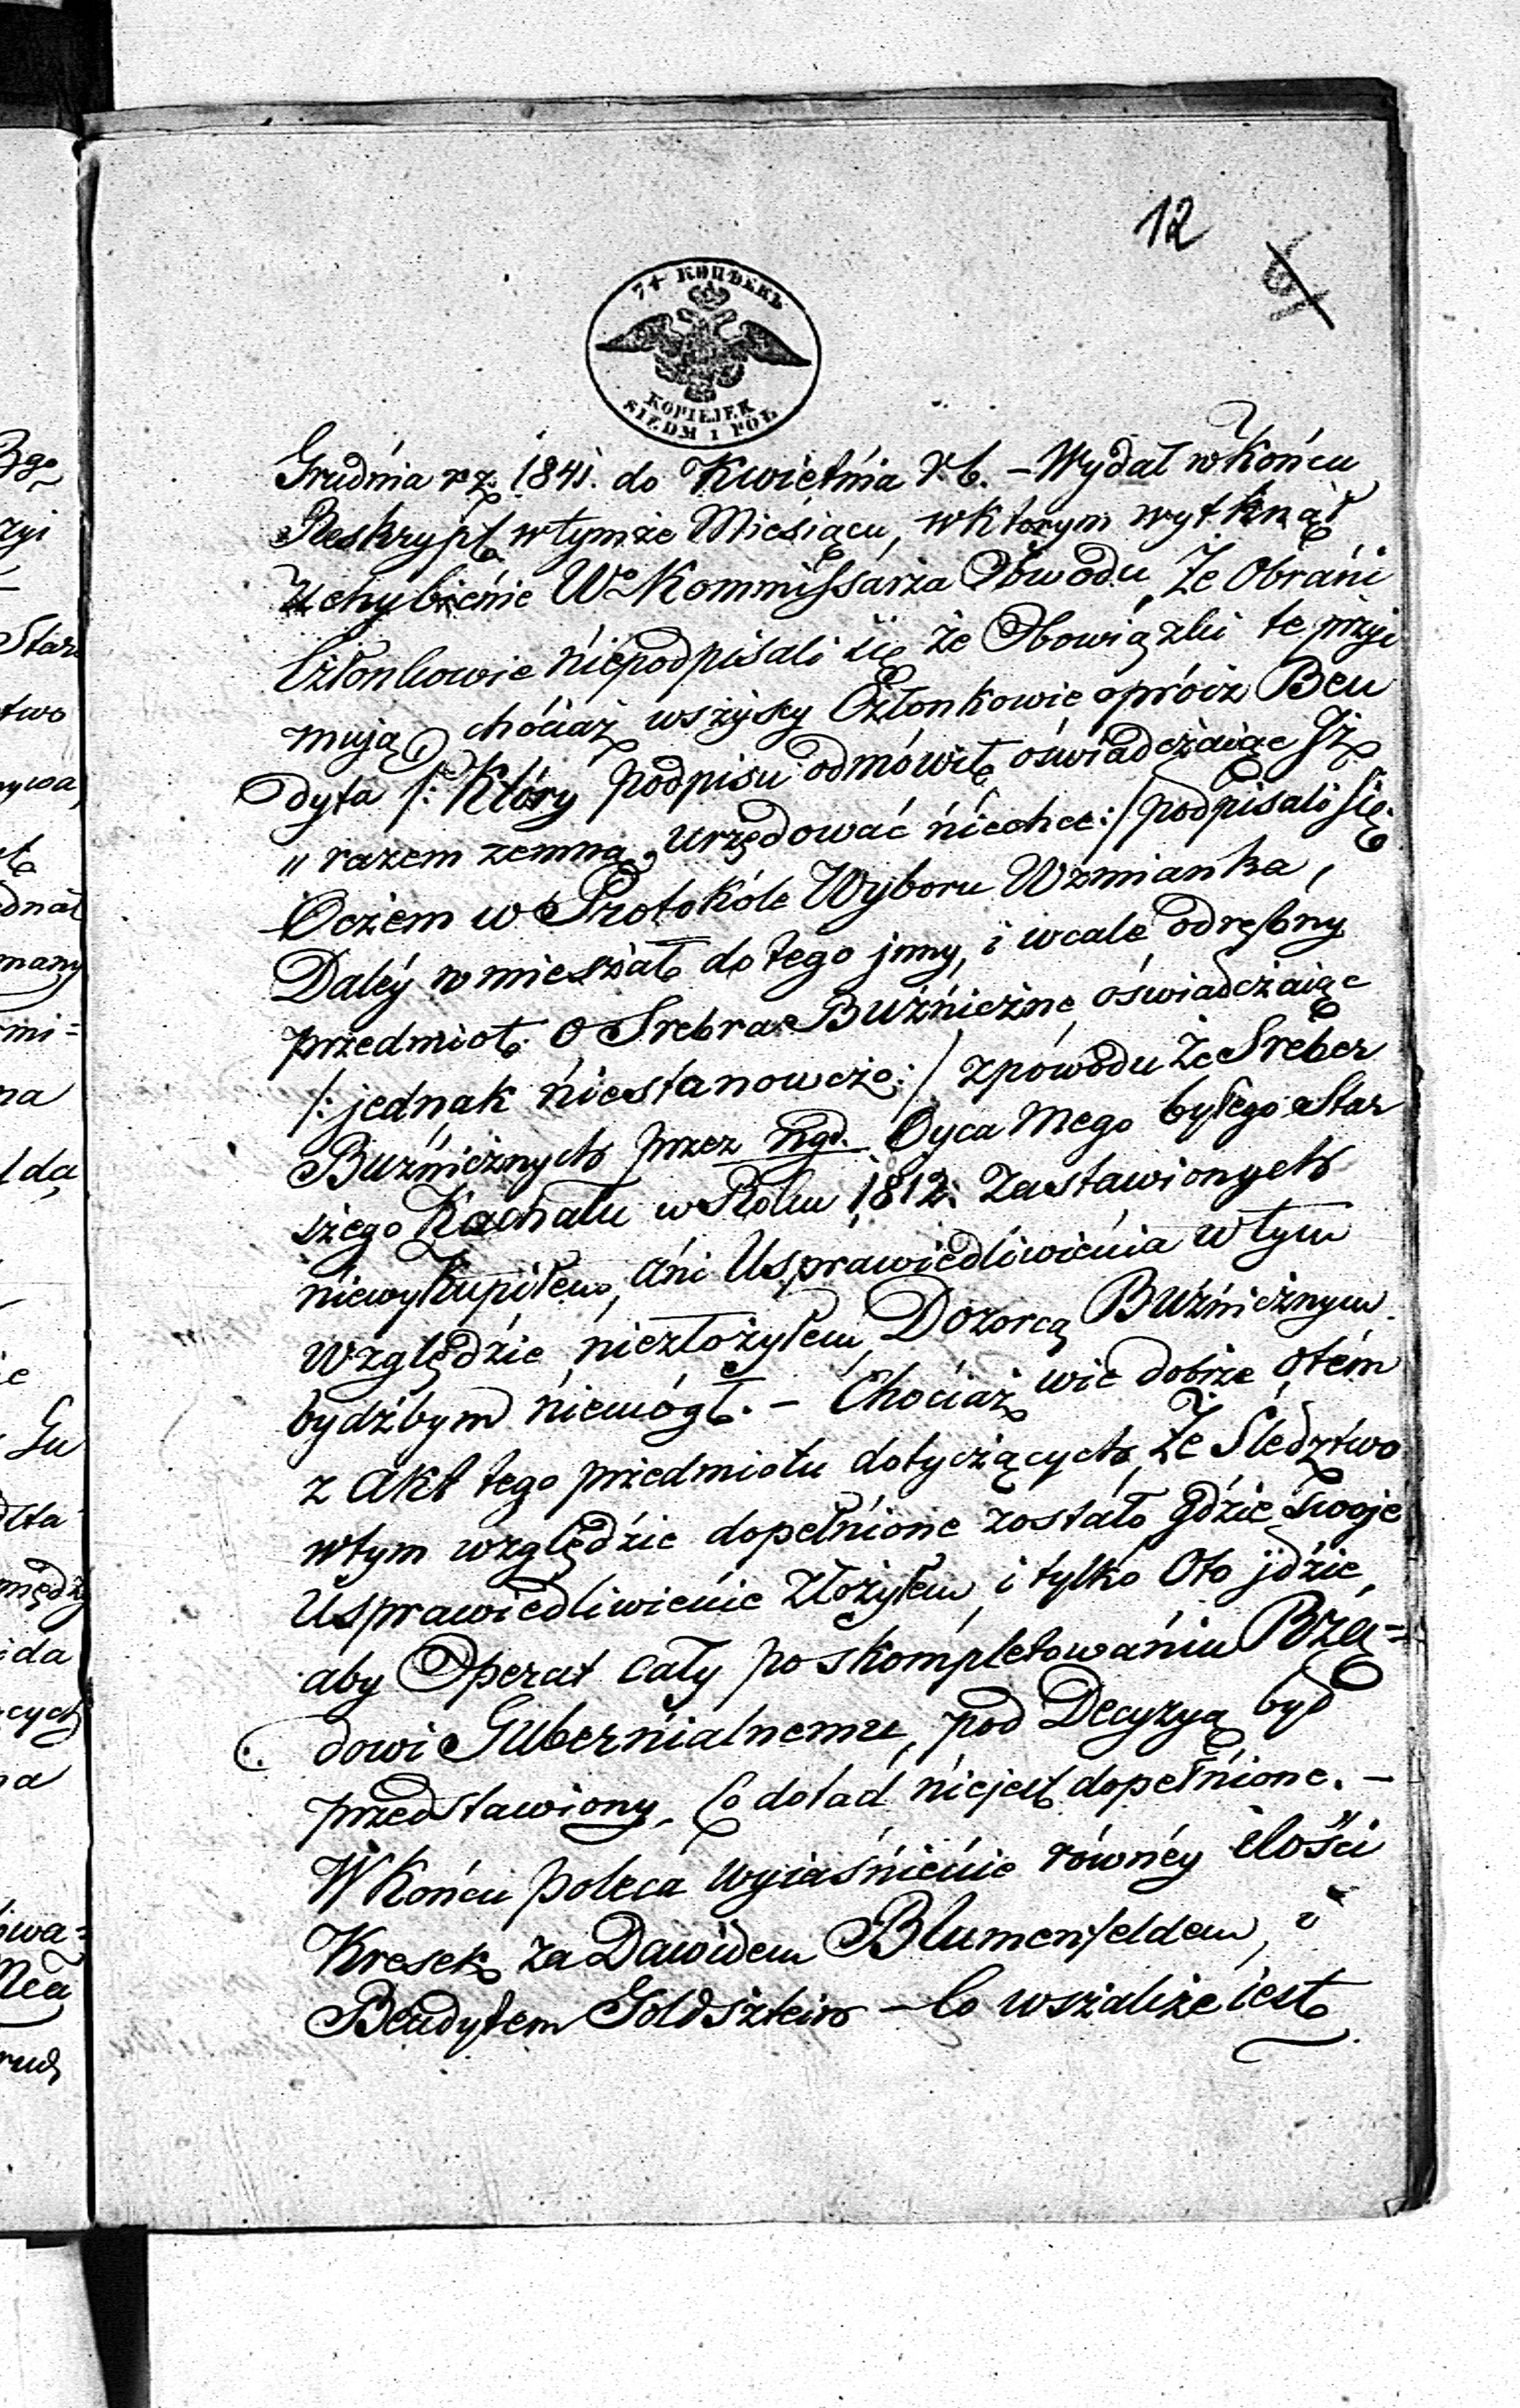 12
6
7½ КОПѢЕКЪ
KOPIEJEK
SIEDM I POŁ
Grudnia r z. 1841. do Kwietnia r. b. – Wydał w Końcu
Reskrypt w tymże Miesiącu, w którym wytknął
Uchybienie Wo Kommissarza Obwodu, Że Obrani
Członkowie niepodpisali się że Obowiązki te przyi
mują, chociaż wszyscy Członkowie oprócz Ben
dyta /: Który podpisu odmówił, oświadczaiąc Jż
„ razem zemną, Urzędować niechce :/ podpisali się.
Oczem w Protokóle Wyboru Wzmianka,
Daléy wmieszał do tego jnny, i wcale odrębny
przedmiot. O Srebra Bużniczne oświadczaiąc
/: jednak niestanowczo :/ z powodu że Sreber
Bużnicznych przez ngd. Oyca Mego byłego Star
szego Kachału w Roku 1812. Zastawionych
niewykupiłem, ani Usprawiedliwienia w tym
Względzie niezłożyłem, Dozorcą Bużnicznym
bydźbym niemógł. – Chociaż wie dobrze otém
z Akt tego przedmiotu dotyczących, Że Śledztwo
w tym względzie dopełnione zostało gdzie swoje
Usprawiedliwienie złożyłem, i tylko Oto jdzie,
aby Operat cały po skompletowaniu Rzą=
dowi Gubernialnemu, pod Decyzyą był
przedstawiony, Co dotąd niejest dopełnione. –
W Końcu poleca wyiaśnienie równéy ilości
Kresek za Dawidem Blumenfeldem, i
Bendytem Goldsztein – Co wszakże iest